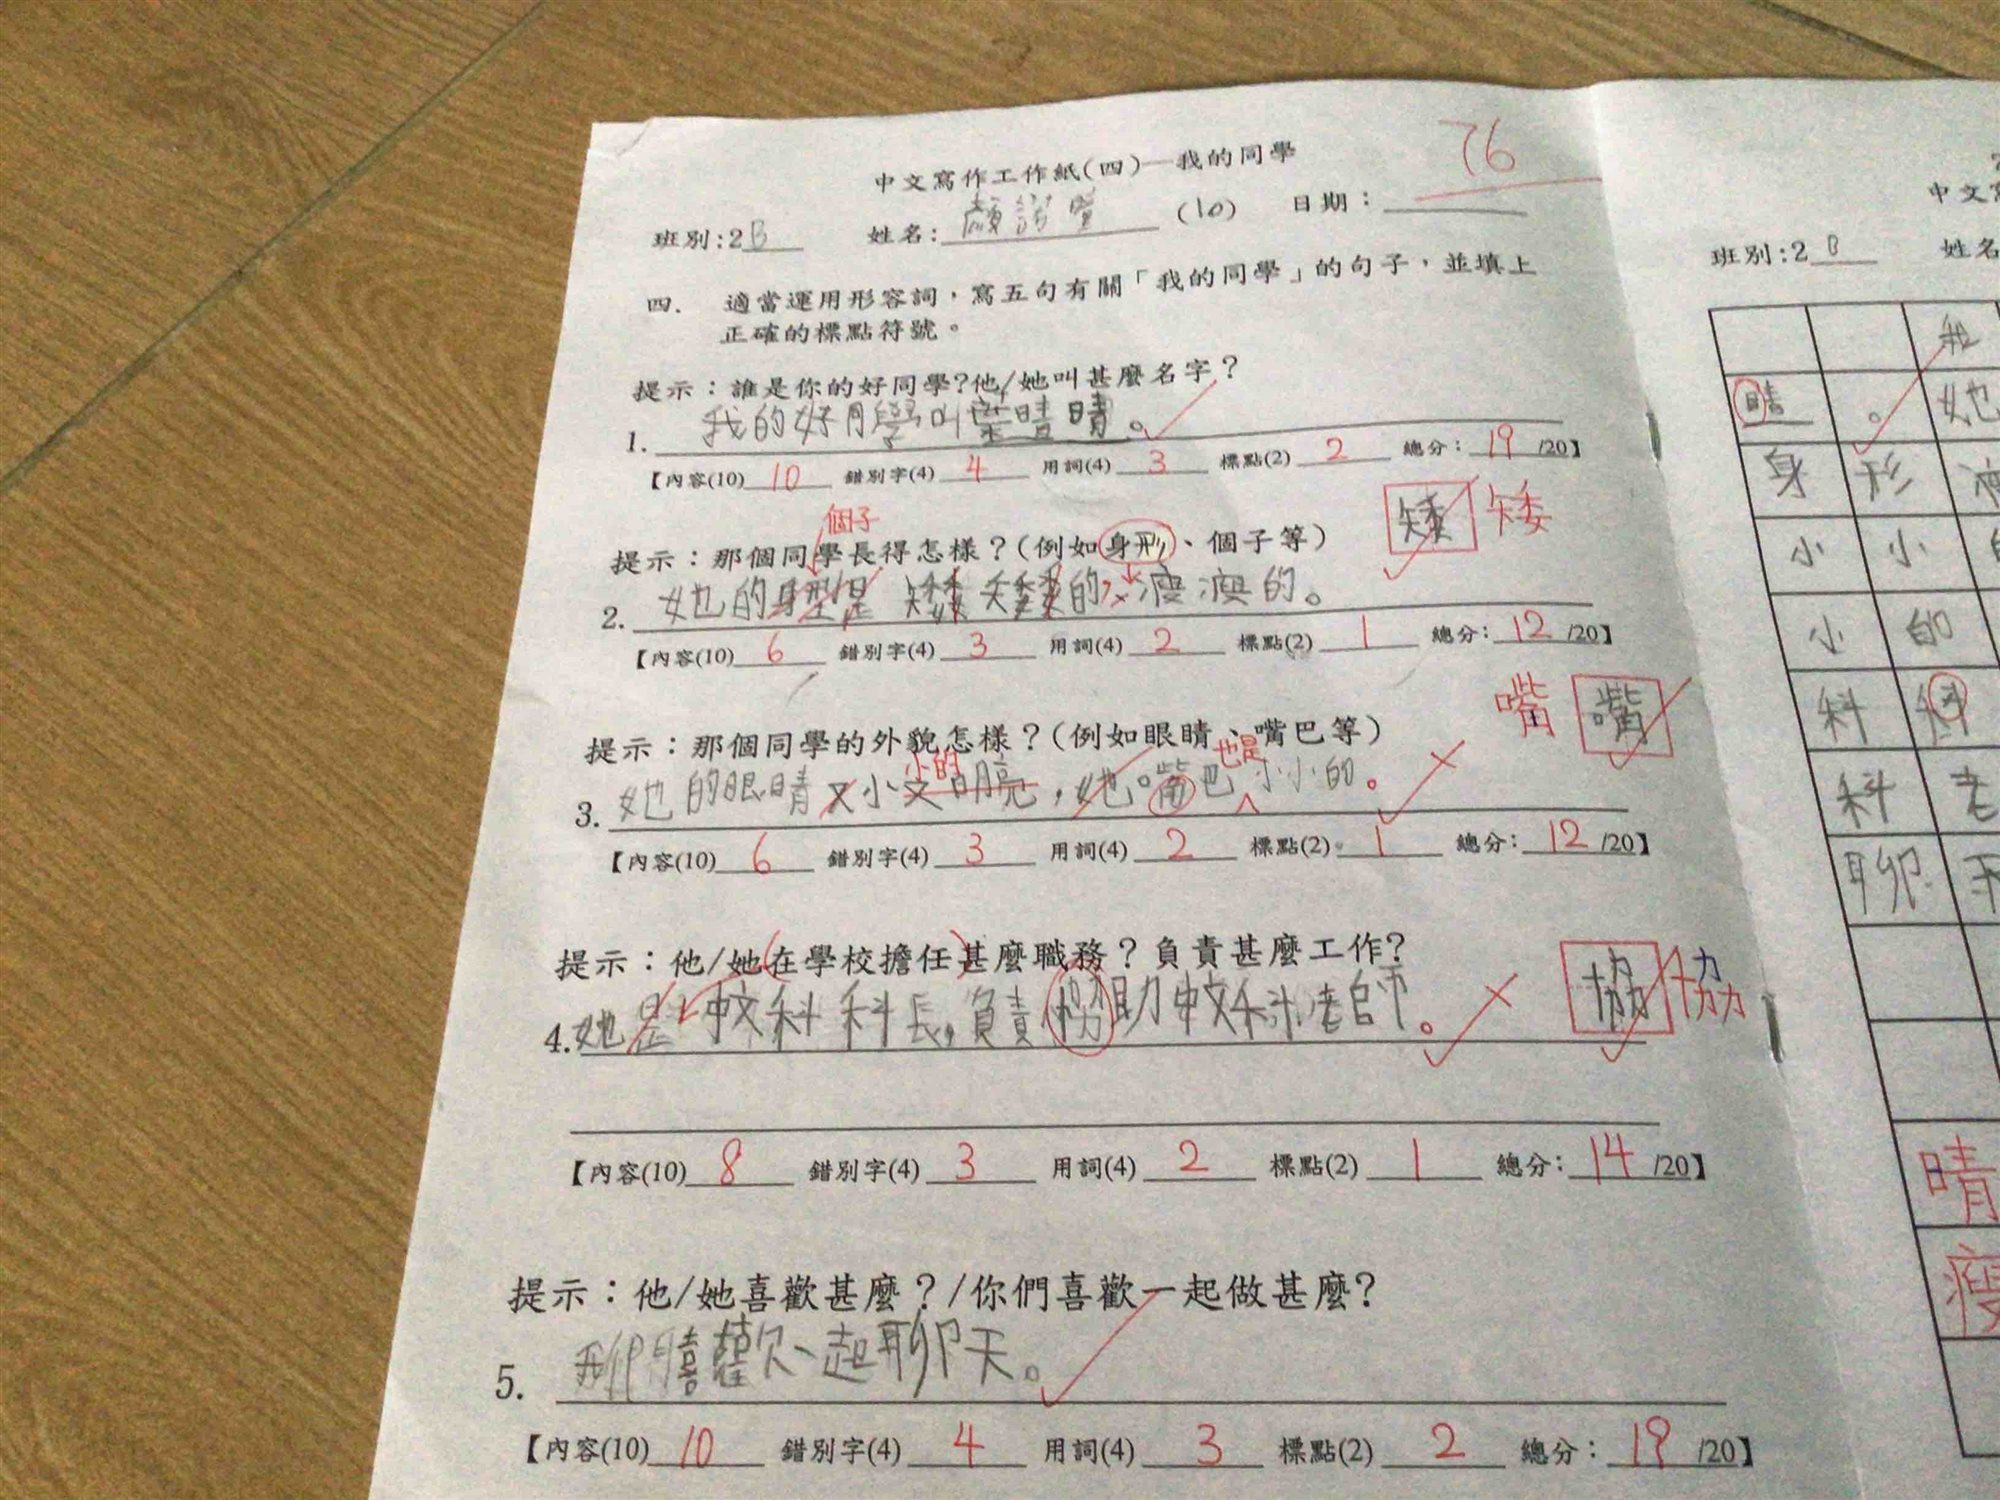 76
中文寫作工作紙(四)—我的同學
班別:2B 姓名:顏 (10) 日期:
四. 適當運用形容詞，寫五句有關「我的同學」的句子，並填上
正確的標點符號。
提示：誰是你的好同學?他/她叫甚麼名字？
1. 我的好同學叫葉晴晴。
【內容(10) 10 錯別字(4) 4 用詞(4) 3 標點(2) 2 總分: 19 /20】
個子
提示：那個同學長得怎樣？(例如身形、個子等) 矮 矮
2. 她的身型是矮矮的，瘦瘦的。
【內容(10) 6 錯別字(4) 3 用詞(4) 2 標點(2) 1 總分: 12 /20】
嘴 嘴
提示：那個同學的外貌怎樣？(例如眼睛、嘴巴等)
小的 也是
3. 她的眼睛又小又明亮，她嘴巴小小的。
【內容(10) 6 錯別字(4) 3 用詞(4) 2 標點(2) 1 總分: 12 /20】
提示：他/她在學校擔任甚麼職務？負責甚麼工作?
4. 她是中文科科長，負責協助中文科老師。 協 協
【內容(10) 8 錯別字(4) 3 用詞(4) 2 標點(2) 1 總分: 14 /20】
提示：他/她喜歡甚麼？/你們喜歡一起做甚麼?
5. 我們喜歡一起聊天。
【內容(10) 10 錯別字(4) 4 用詞(4) 3 標點(2) 2 總分: 19 /20】
中文
班別:2B 姓名
我
晴 。 她
身 形 瘦
小 小 的
小 的
科 科
科 老
聊 天
晴
瘦